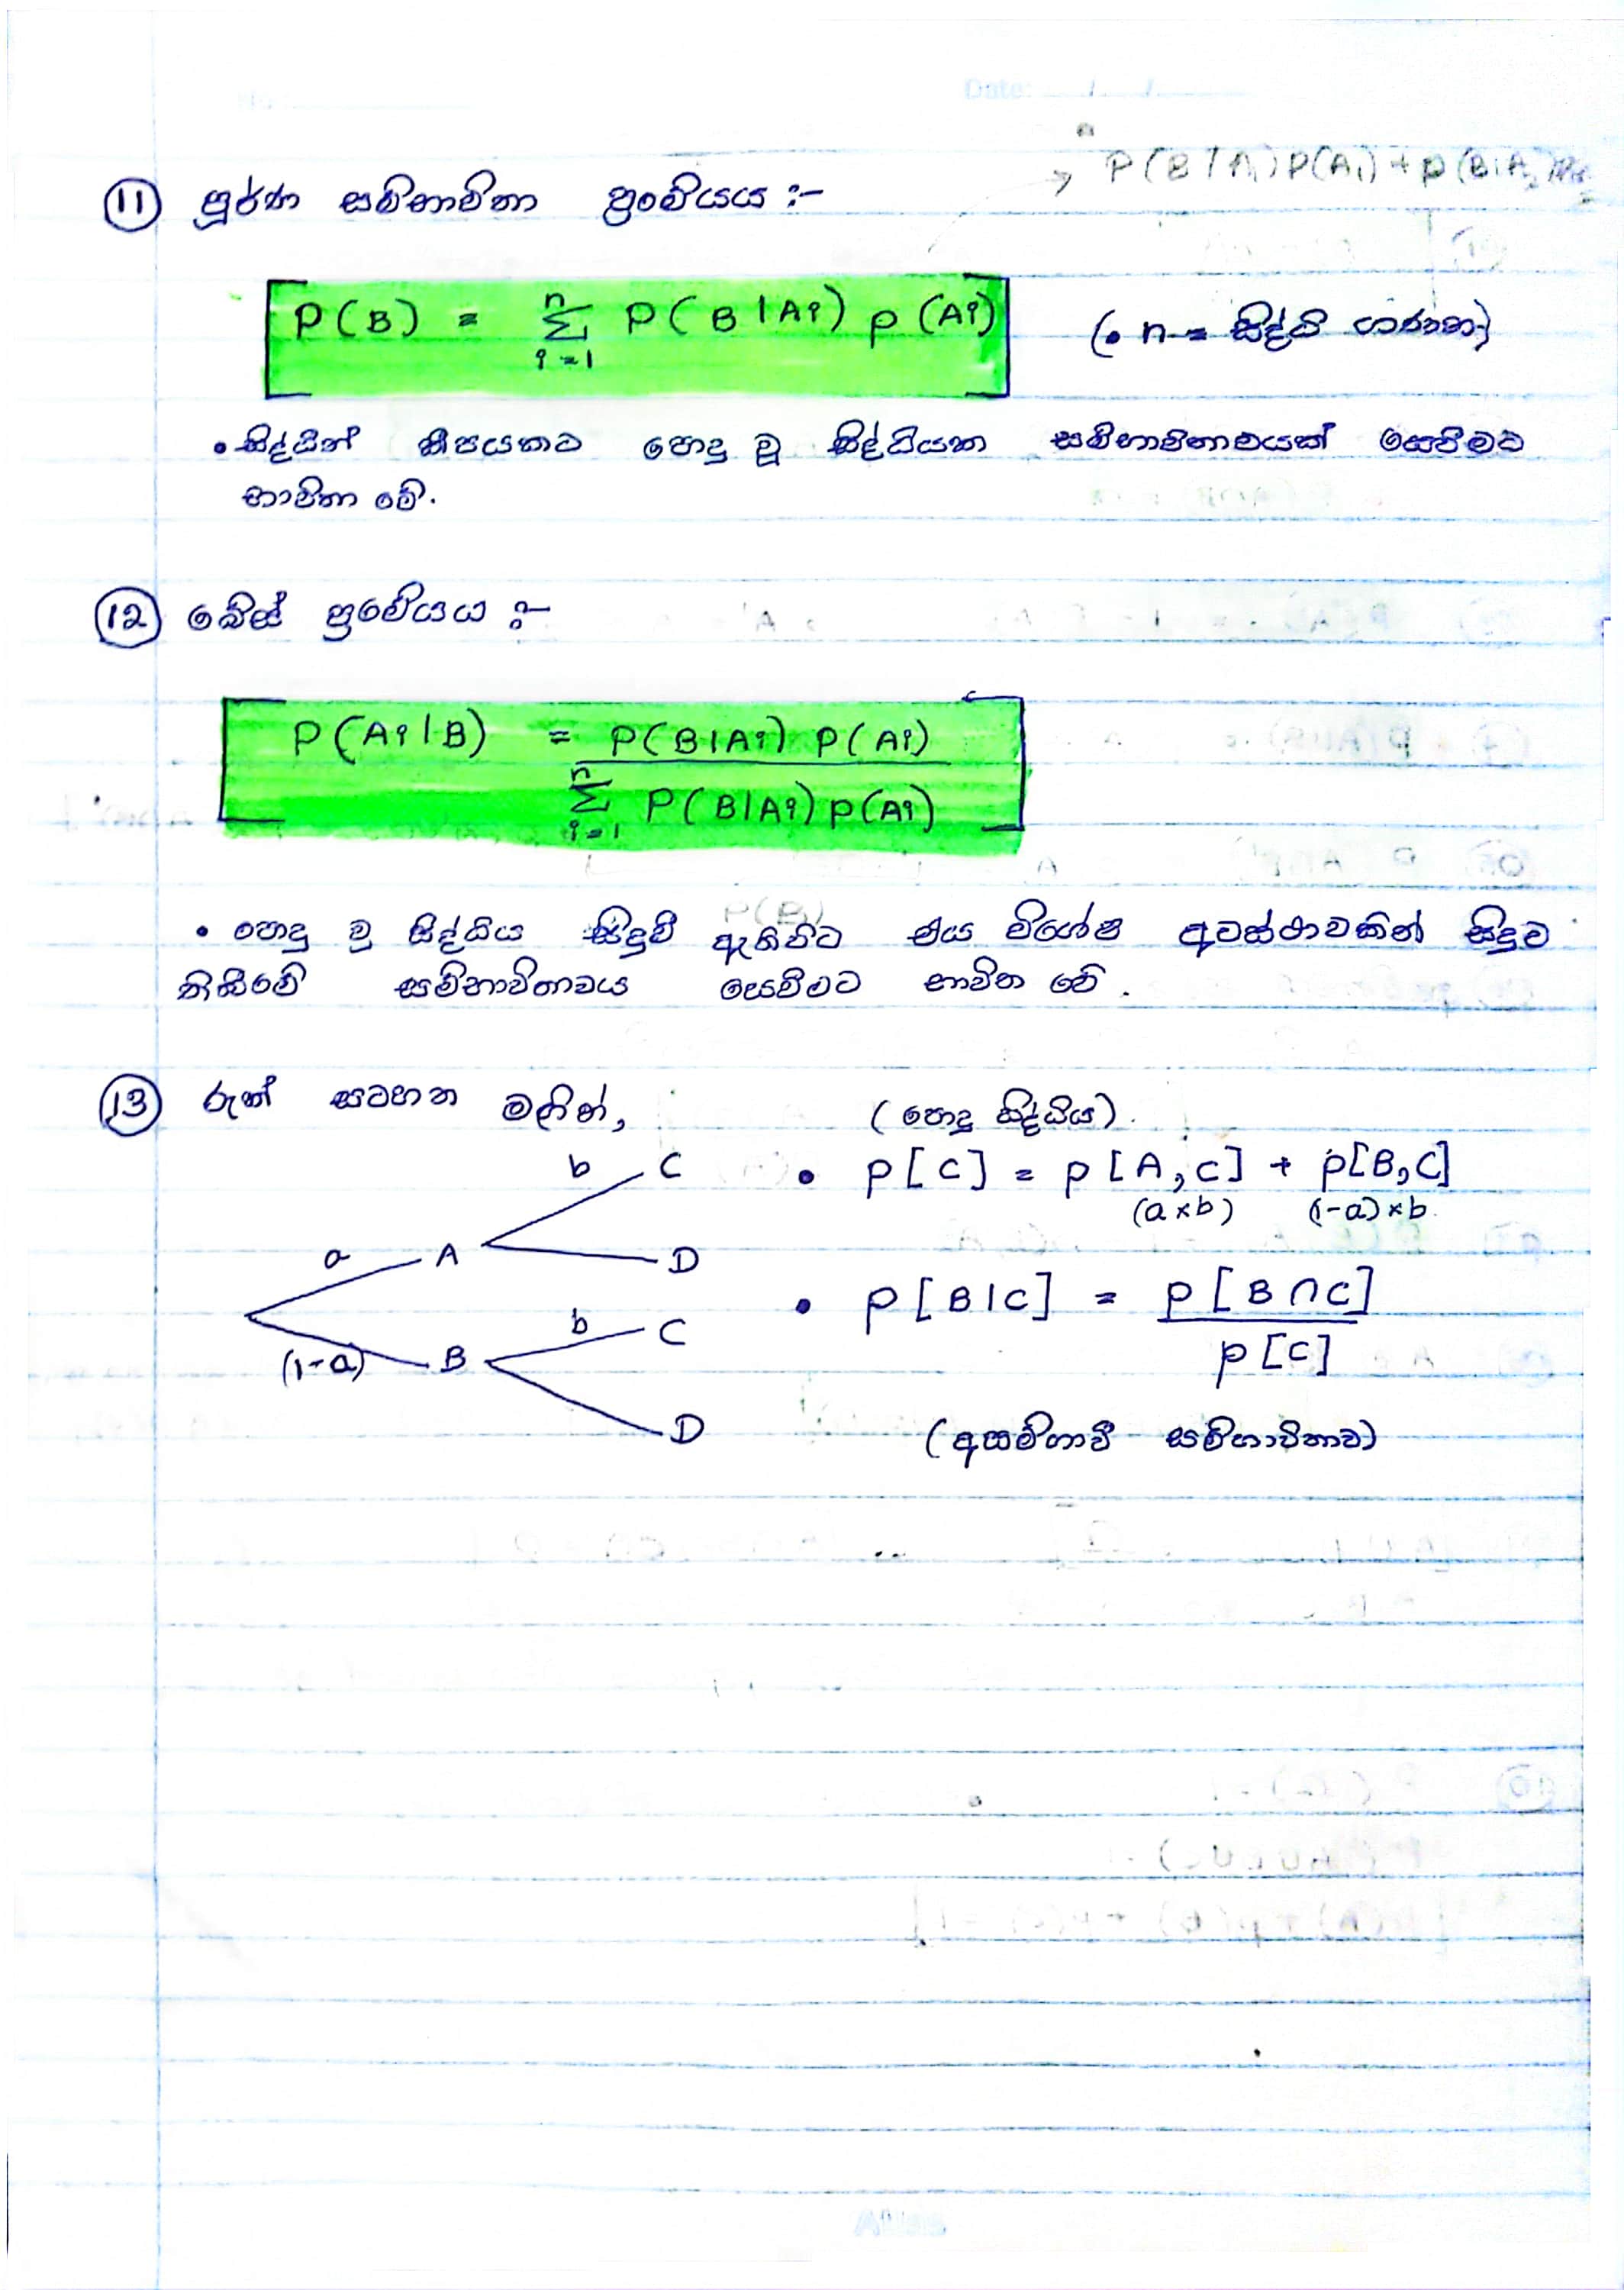 Date:
→ P(B|A₁)P(A₁) + P(B|A₂)
⑪ පූර්ණ සම්භාවිතා ප්‍රමේයය :-
P(B) = n Σ i=1 P(B|Ai) P(Ai) (• n = සිද්ධි ගණන)
• සිද්ධීන් කීපයකට පොදු වූ සිද්ධියක සම්භාවිතාවයක් සෙවීමට
භාවිතා වේ.
⑫ බේස් ප්‍රමේයය :-
P(Ai|B) = P(B|Ai) P(Ai)
n Σ i=1 P(B|Ai) P(Ai)
P(B)
• පොදු වු සිද්ධිය සිදුවී ඇතිවිට එය විශේෂ අවස්ථාවකින් සිදුව
තිබීමේ සම්භාවිතාවය සෙවීමට භාවිත වේ.
⑬ රුක් සටහන මඟින්, (පොදු සිද්ධිය).
b C • P[C] = P[A,C] + P[B,C]
(a×b) (1-a)×b
a A D
• P[B|C] = P[B∩C]
P[C]
b C
(1-a) B
D
(අසම්භාවී සම්භාවිතාව)